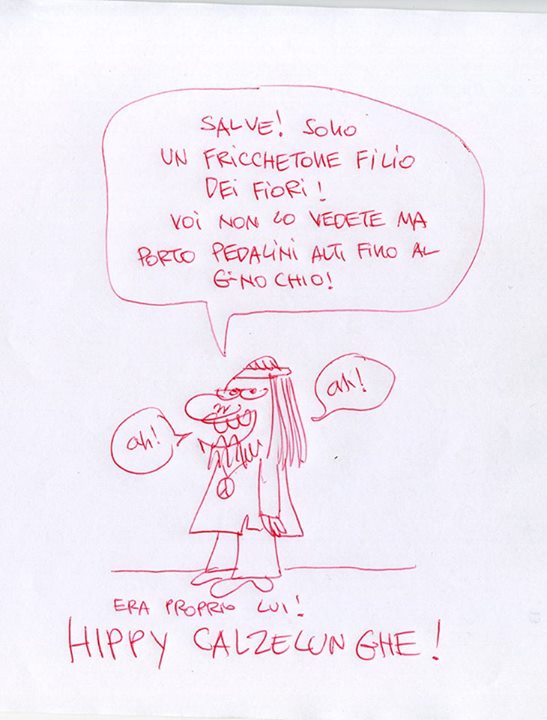 SALVE! SONO
UN FRICCHETONE FILIO
DEI FIORI!
VOI NON LO VEDETE MA
PORTO PEDALINI ALTI FINO AL
GINOCCHIO!
ah!
ah!
ERA PROPRIO LUI!
HIPPY CALZELUNGHE!